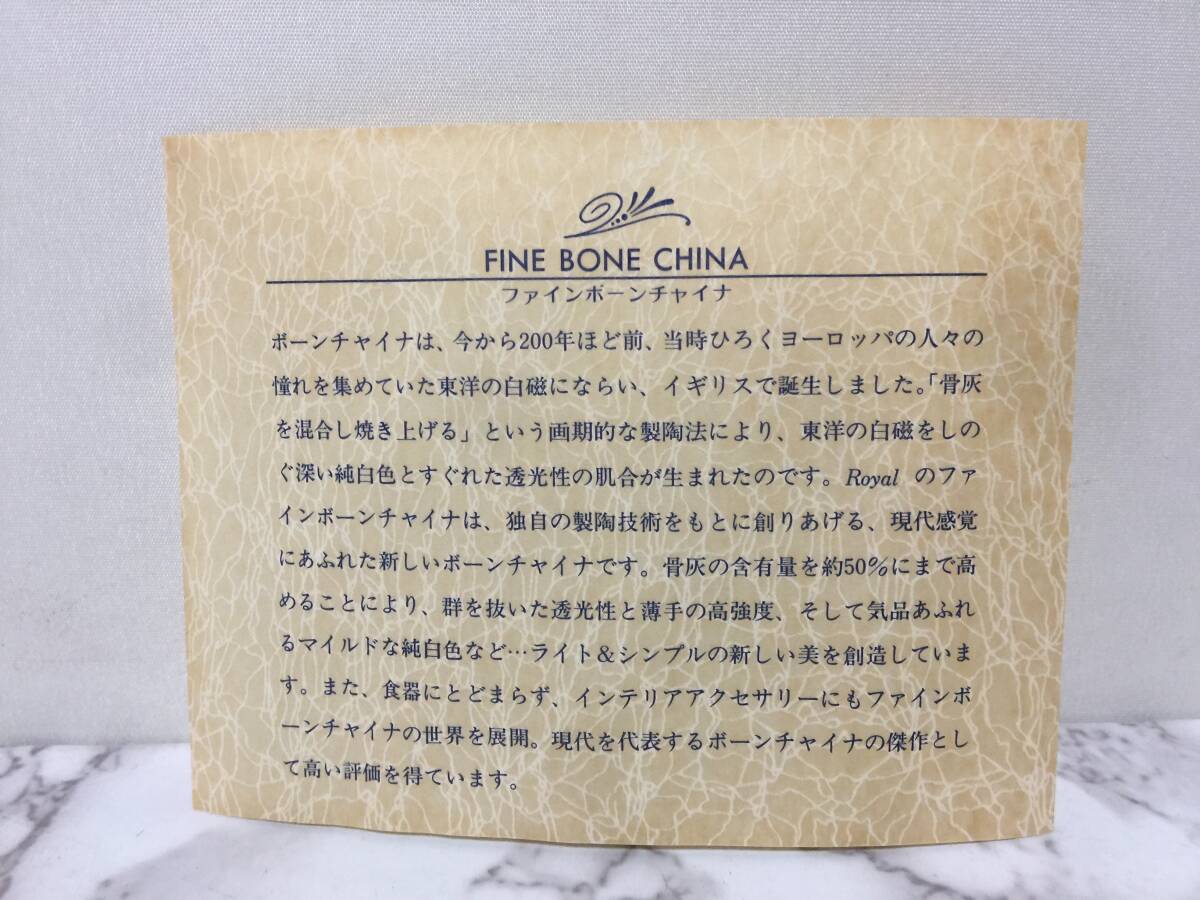 FINE BONE CHINA
ファインボーンチャイナ
ボーンチャイナは、今から200年ほど前、当時ひろくヨーロッパの人々の
憧れを集めていた東洋の白磁にならい、イギリスで誕生しました。「骨灰
を混合し焼き上げる」という画期的な製陶法により、東洋の白磁をしの
ぐ深い純白色とすぐれた透光性の肌合が生まれたのです。Royal のファ
インボーンチャイナは、独自の製陶技術をもとに創りあげる、現代感覚
にあふれた新しいボーンチャイナです。骨灰の含有量を約50%にまで高
めることにより、群を抜いた透光性と薄手の高強度、そして気品あふれ
るマイルドな純白色など…ライト&シンプルの新しい美を創造していま
す。また、食器にとどまらず、インテリアアクセサリーにもファインボ
ーンチャイナの世界を展開。現代を代表するボーンチャイナの傑作とし
て高い評価を得ています。